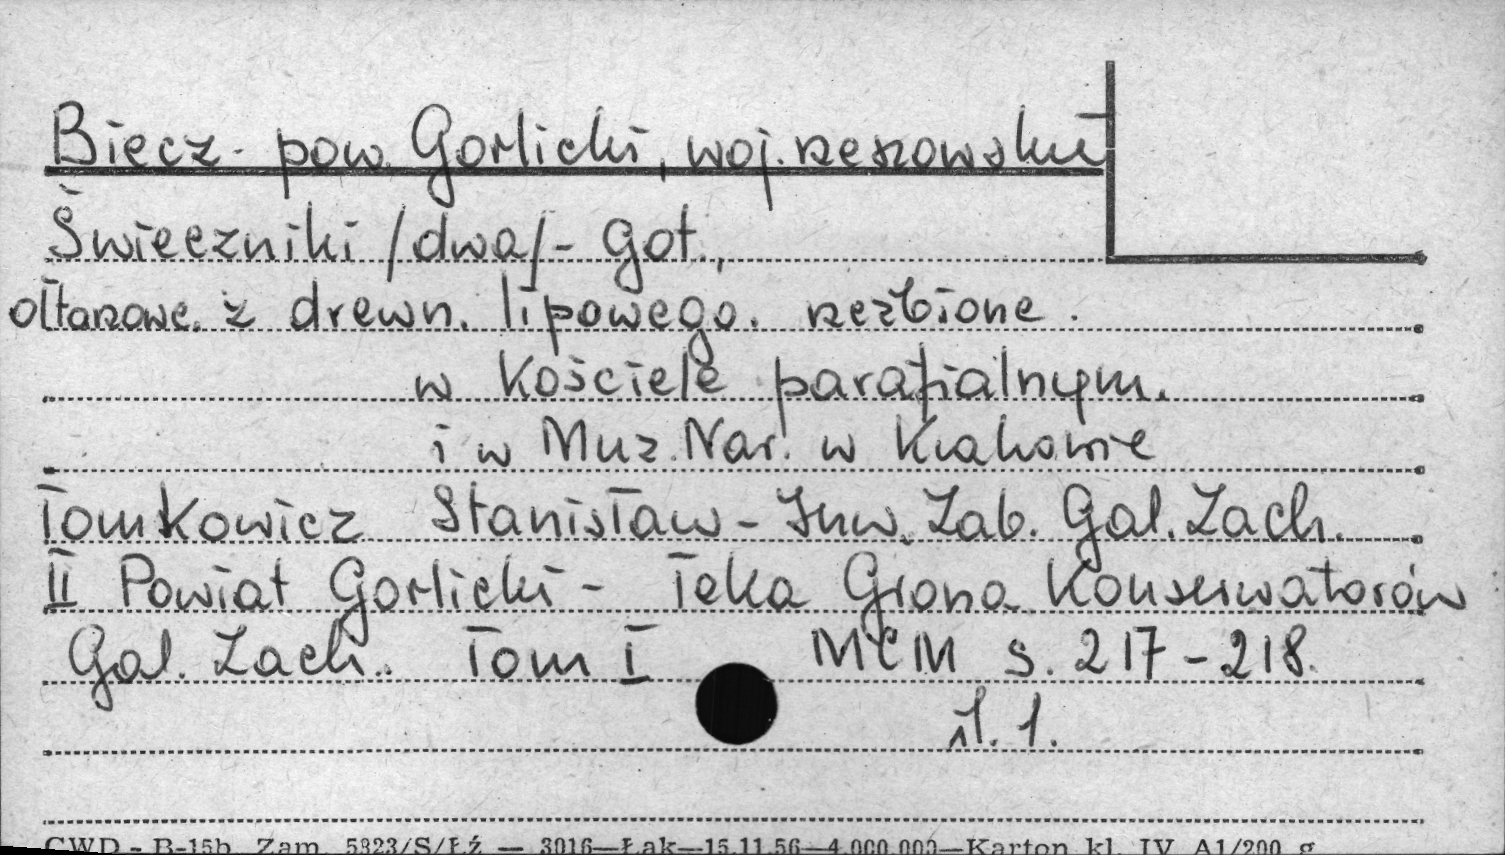 Biecz. pow. Gorlicki, woj. rzeszowskie
Świeczniki /dwa/ - Got.,
ołtarzowe. z drewn. lipowego. rzeźbione.
w Kościele parafialnym.
i w Muz. Nar. w Krakowie
Tomkowicz Stanisław - Inw. Zab. Gal. Zach.
II Powiat Gorlicki - Teka Grona Konserwatorów
Gal. Zach. Tom I MCM s. 217-218.
il. 1.
CWD - B-15b. Zam. 5823/S/Łź — 3016—Łak—15.11.56—4.000.000—Karton kl. IV A1/200 g